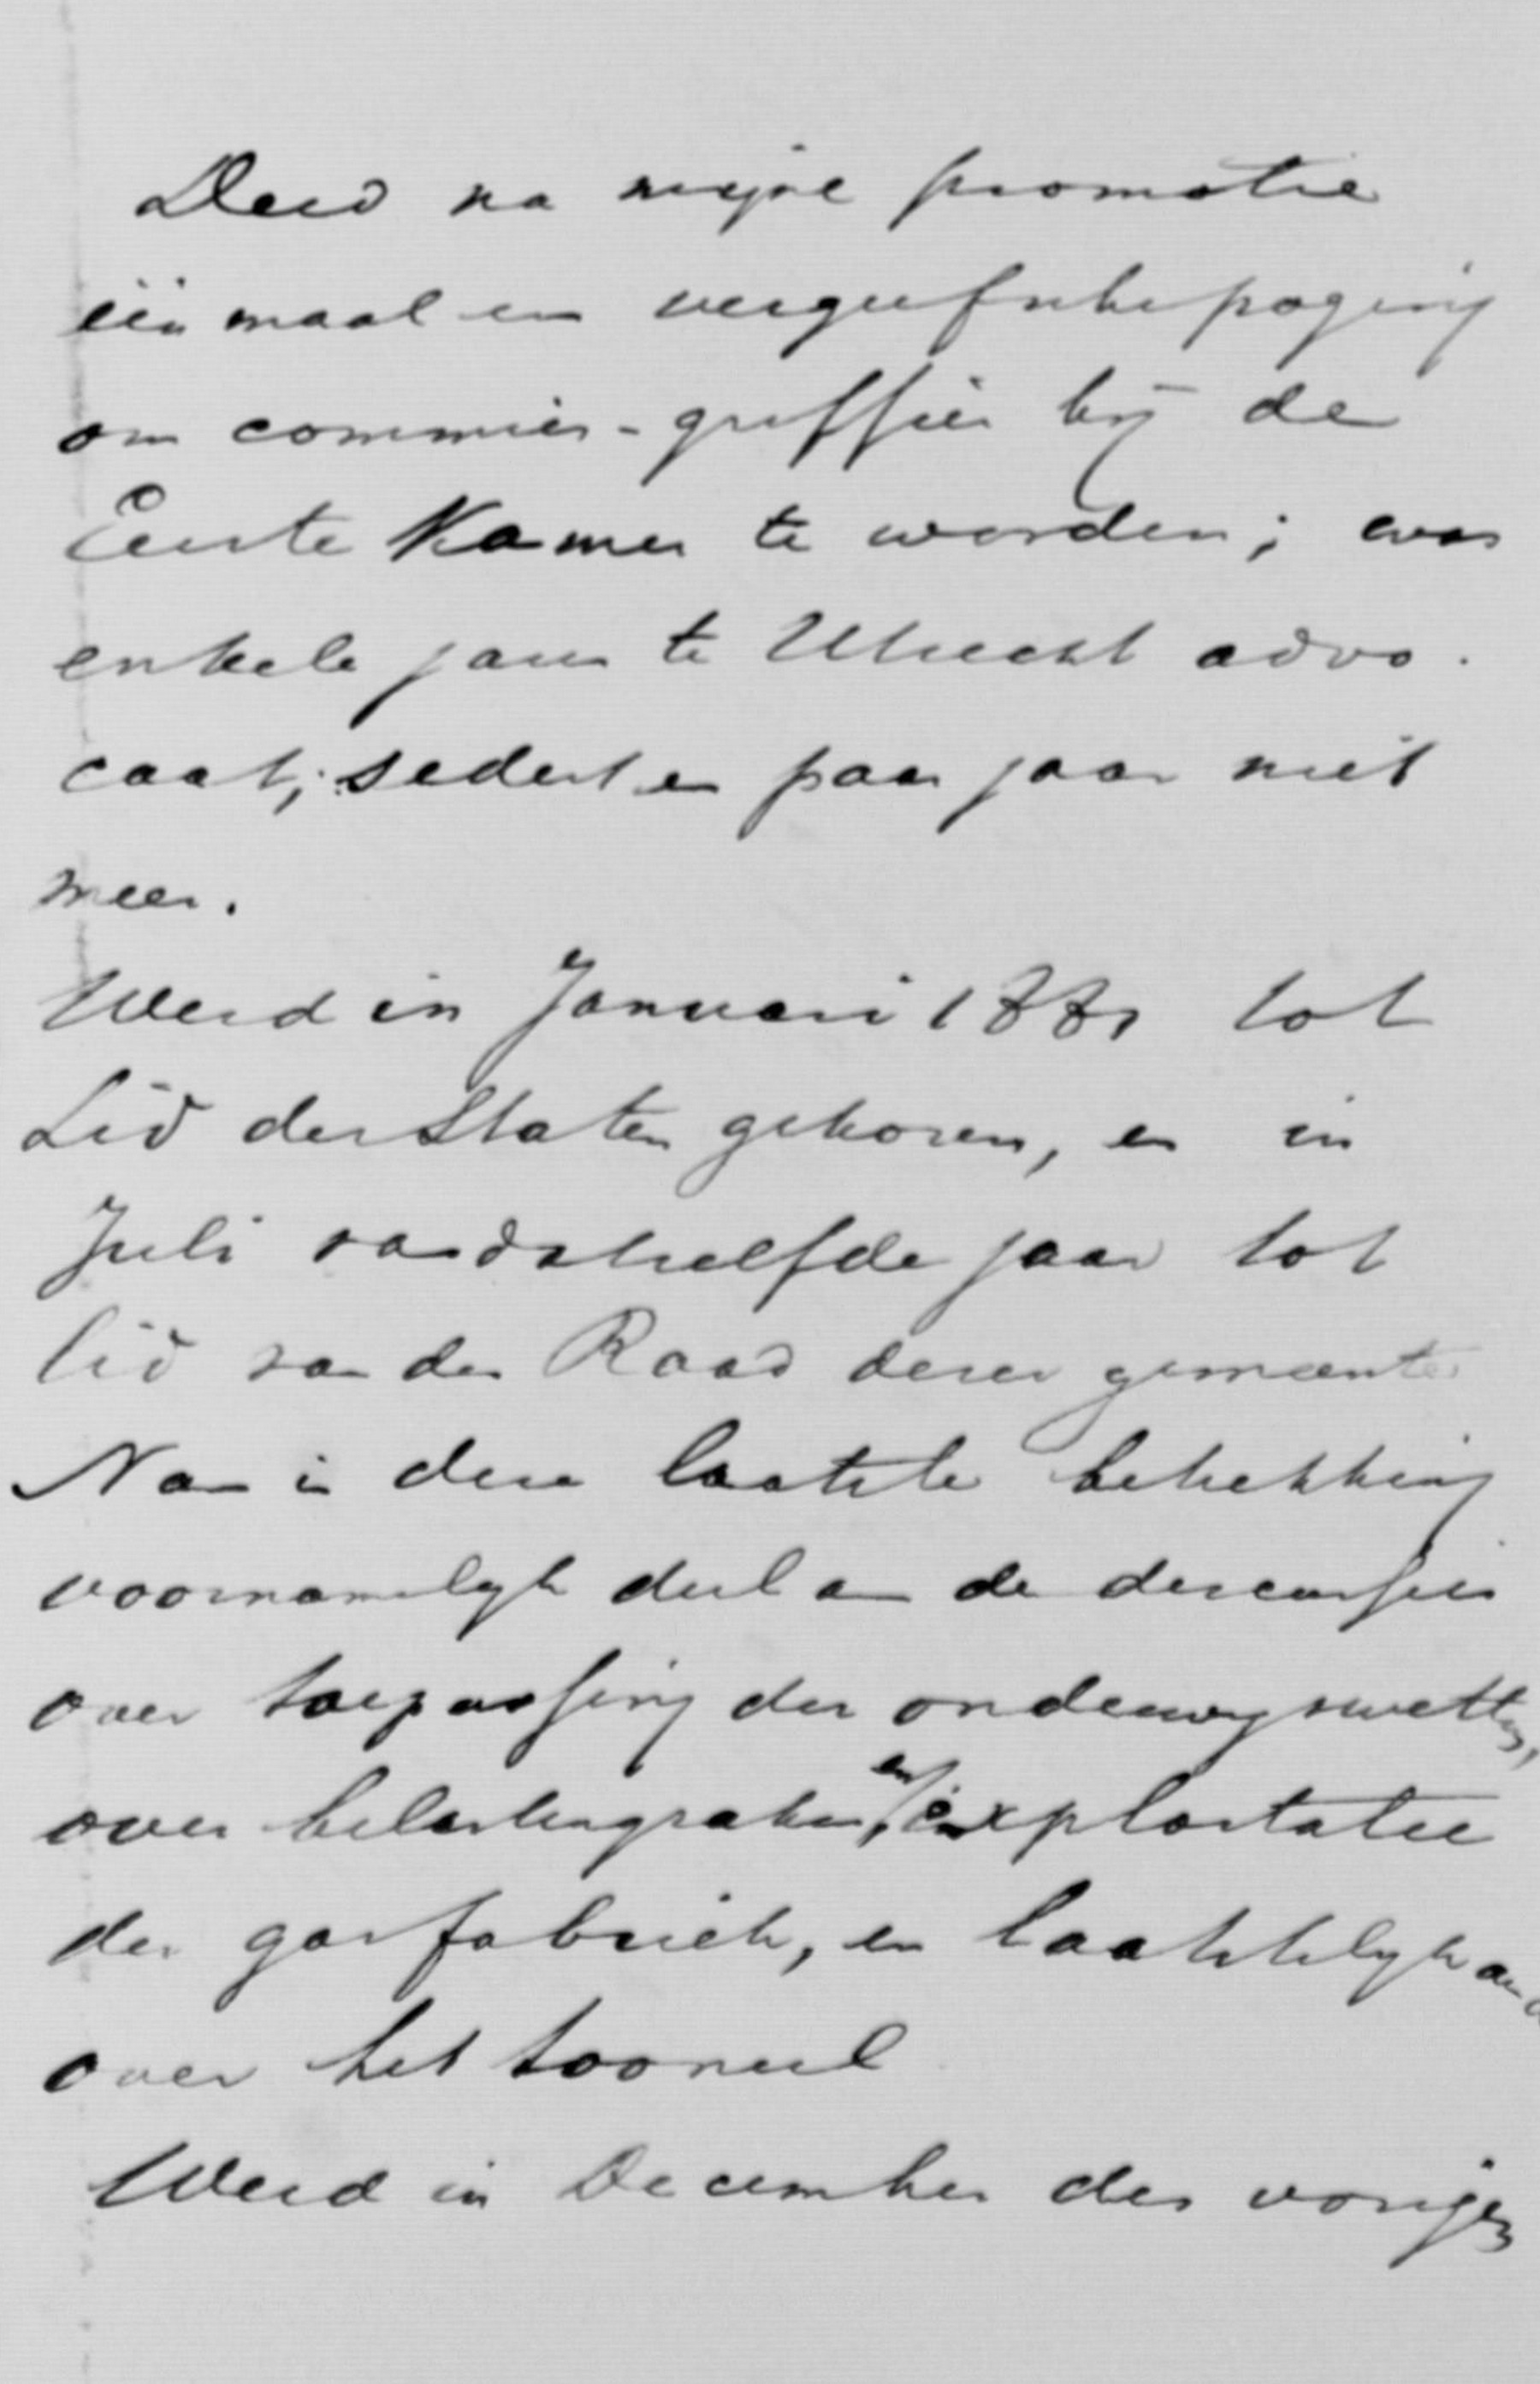 Deed na mijne promotie
één maal een vergeefsche poging
om commies-griffier bij de
Eerste Kamer te worden; was
enkele jaren te Utrecht advo-
caat; sedert een paar jaar niet
meer.
Werd in Januari 1881 tot
Lid der Staten gekozen, en in
Juli van dat zelfde jaar tot
lid van den Raad dezer gemeente
Nam in deze laatste betrekking
voornamelijk deel aan de discussies
over toepassing der onderwijswetten,
over belastingzaken, en exploitatie
der gasfabriek, en laatstelijk aan
over het tooneel
Werd in December des vorigen